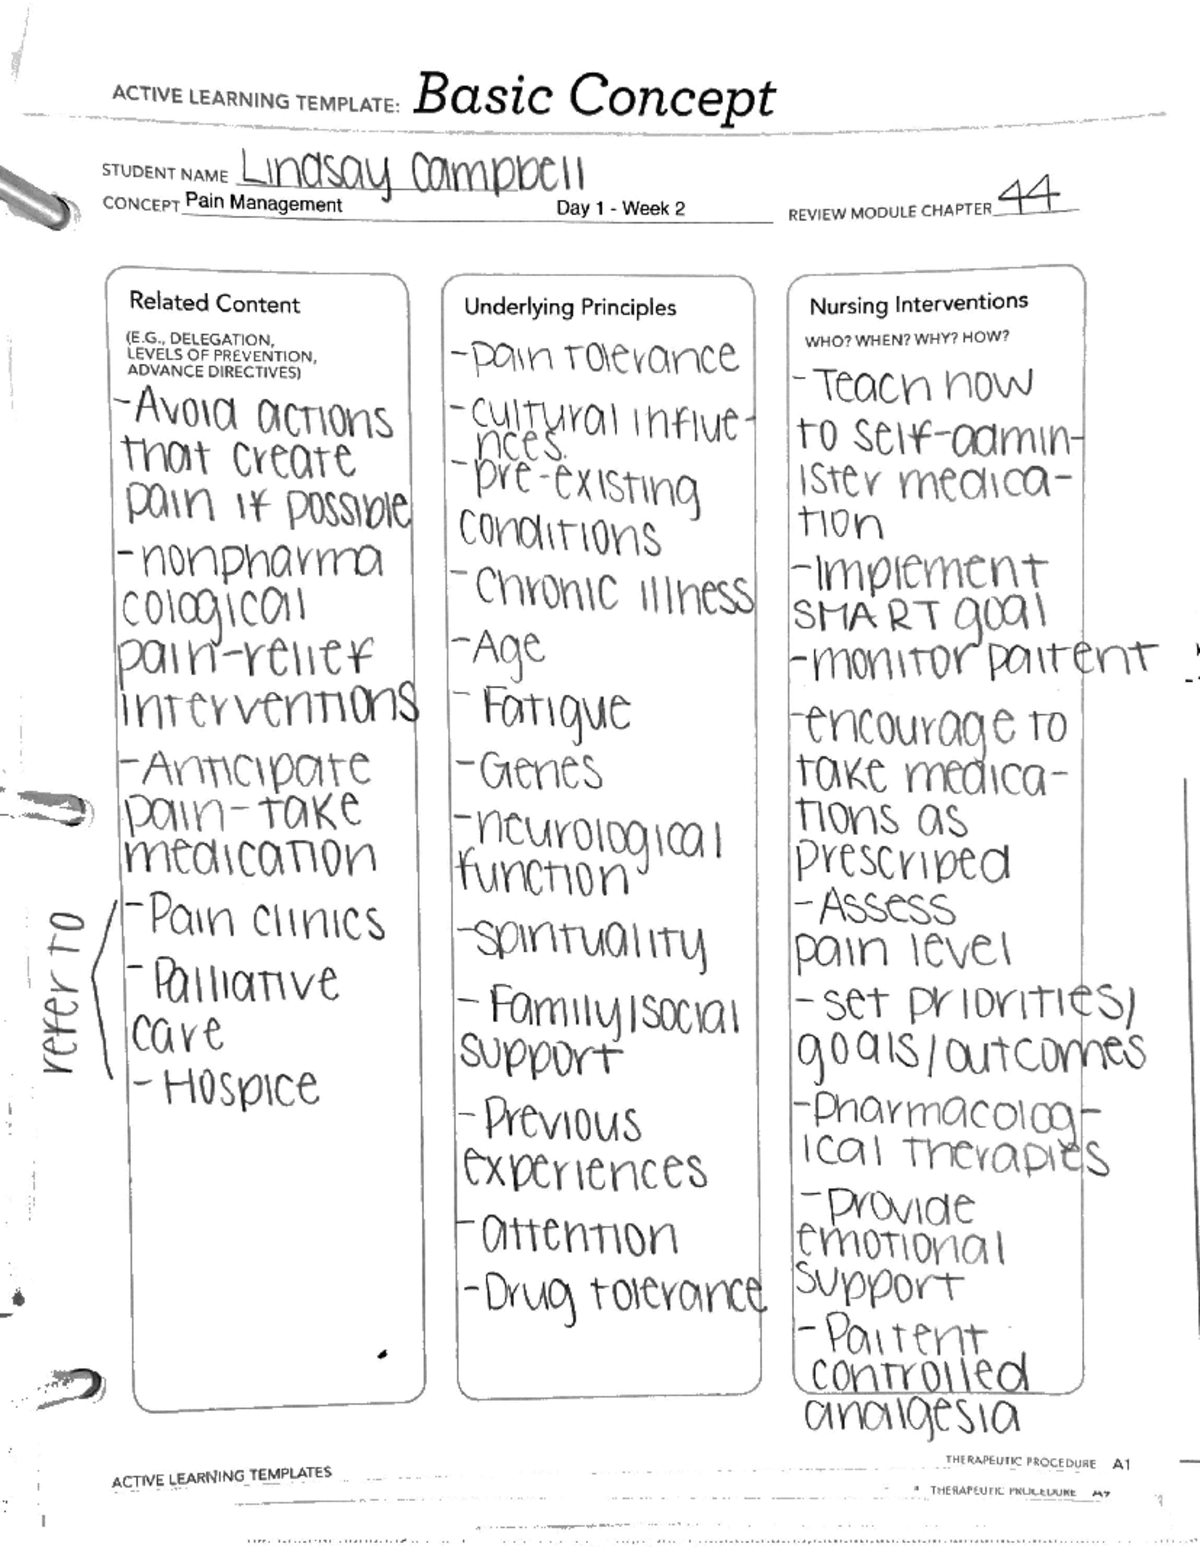 ACTIVE LEARNING TEMPLATE: Basic Concept
STUDENT NAME Lindsay Campbell
CONCEPT Pain Management Day 1 - Week 2 REVIEW MODULE CHAPTER 44
Related Content
(E.G., DELEGATION,
LEVELS OF PREVENTION,
ADVANCE DIRECTIVES)
-Avoid actions
that create
pain if possible
-nonpharma
cological
pain-relief
interventions
-Anticipate
pain-take
medication
refer to
-Pain clinics
-Palliative
care
-Hospice
Underlying Principles
-pain tolerance
-cultural influe-
nces.
-pre-existing
conditions
-Chronic illness
-Age
-Fatigue
-Genes
-neurological
function
-spirituality
-Family/social
support
-Previous
experiences
-attention
-Drug tolerance
Nursing Interventions
WHO? WHEN? WHY? HOW?
-Teach how
to self-admin-
ister medica-
tion
-Implement
SMART goal
-monitor paitent
-encourage to
take medica-
tions as
prescribed
-Assess
pain level
-set priorities/
goals/outcomes
-Pharmacolog-
ical therapies
-Provide
emotional
support
-Paitent
controlled
analgesia
ACTIVE LEARNING TEMPLATES
THERAPEUTIC PROCEDURE A1
THERAPEUTIC PROCEDURE A7